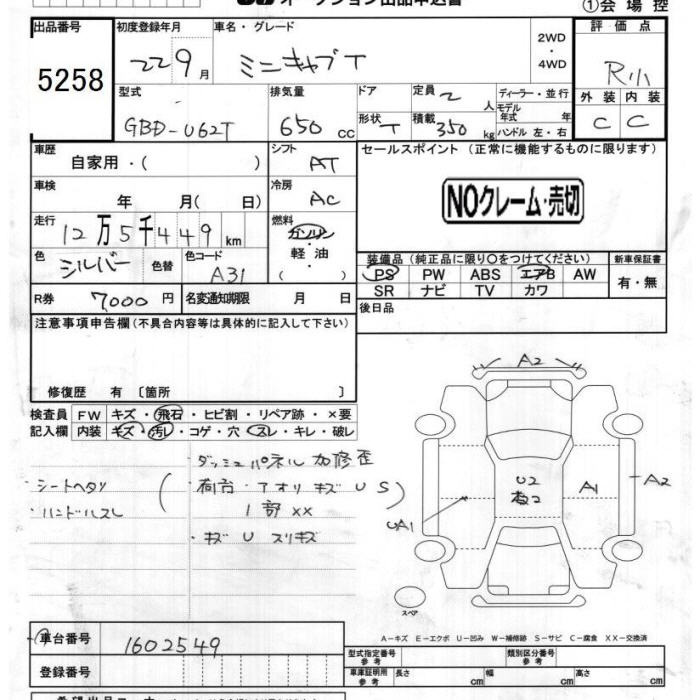 オークション出品申込書 ①会場控
出品番号 初度登録年月 車名・グレード 評価点
5258 22 9月 ミニキャブT 2WD・4WD R小
型式 排気量 ドア 定員 2人 ディーラー・並行 外装 内装
モデル年式 年
GBD-U62T 650cc 形状 T 積載 350kg ハンドル 左・右 C C
車歴 自家用・( ) シフト AT セールスポイント(正常に機能するものに限ります)
車検 年 月( 日) 冷房 AC NOクレーム・売切
走行 12万5千449km 燃料 ガソリン・軽油・( )
色 シルバー 色替 色コード A31
装備品(純正品に限り○をつけてください) 新車保証書
PS PW ABS エアB AW 有・無
SR ナビ TV カワ
R券 7000円 名変通知期限 月 日 後日品
注意事項申告欄(不具合内容等は具体的に記入して下さい)
修復歴 有〔箇所 〕
検査員 FW キズ・飛石・ヒビ割・リペア跡・×要
記入欄 内装 キズ・汚レ・コゲ・穴・スレ・キレ・破レ
・ダッシュパネル加修歪
・シートヘタリ
・ハンドルスレ
(荷台・アオリキズUS)
1部XX
・キズUスリキズ
A2
U2
A1
A2
UA1
スペア
A-キズ E-エクボ U-凹み W-補修跡 S-サビ C-腐食 XX-交換済
車台番号 1602549
登録番号
型式指定番号 参考 類別区分番号 参考
車庫証明用 参考 長さ cm 幅 cm 高さ cm